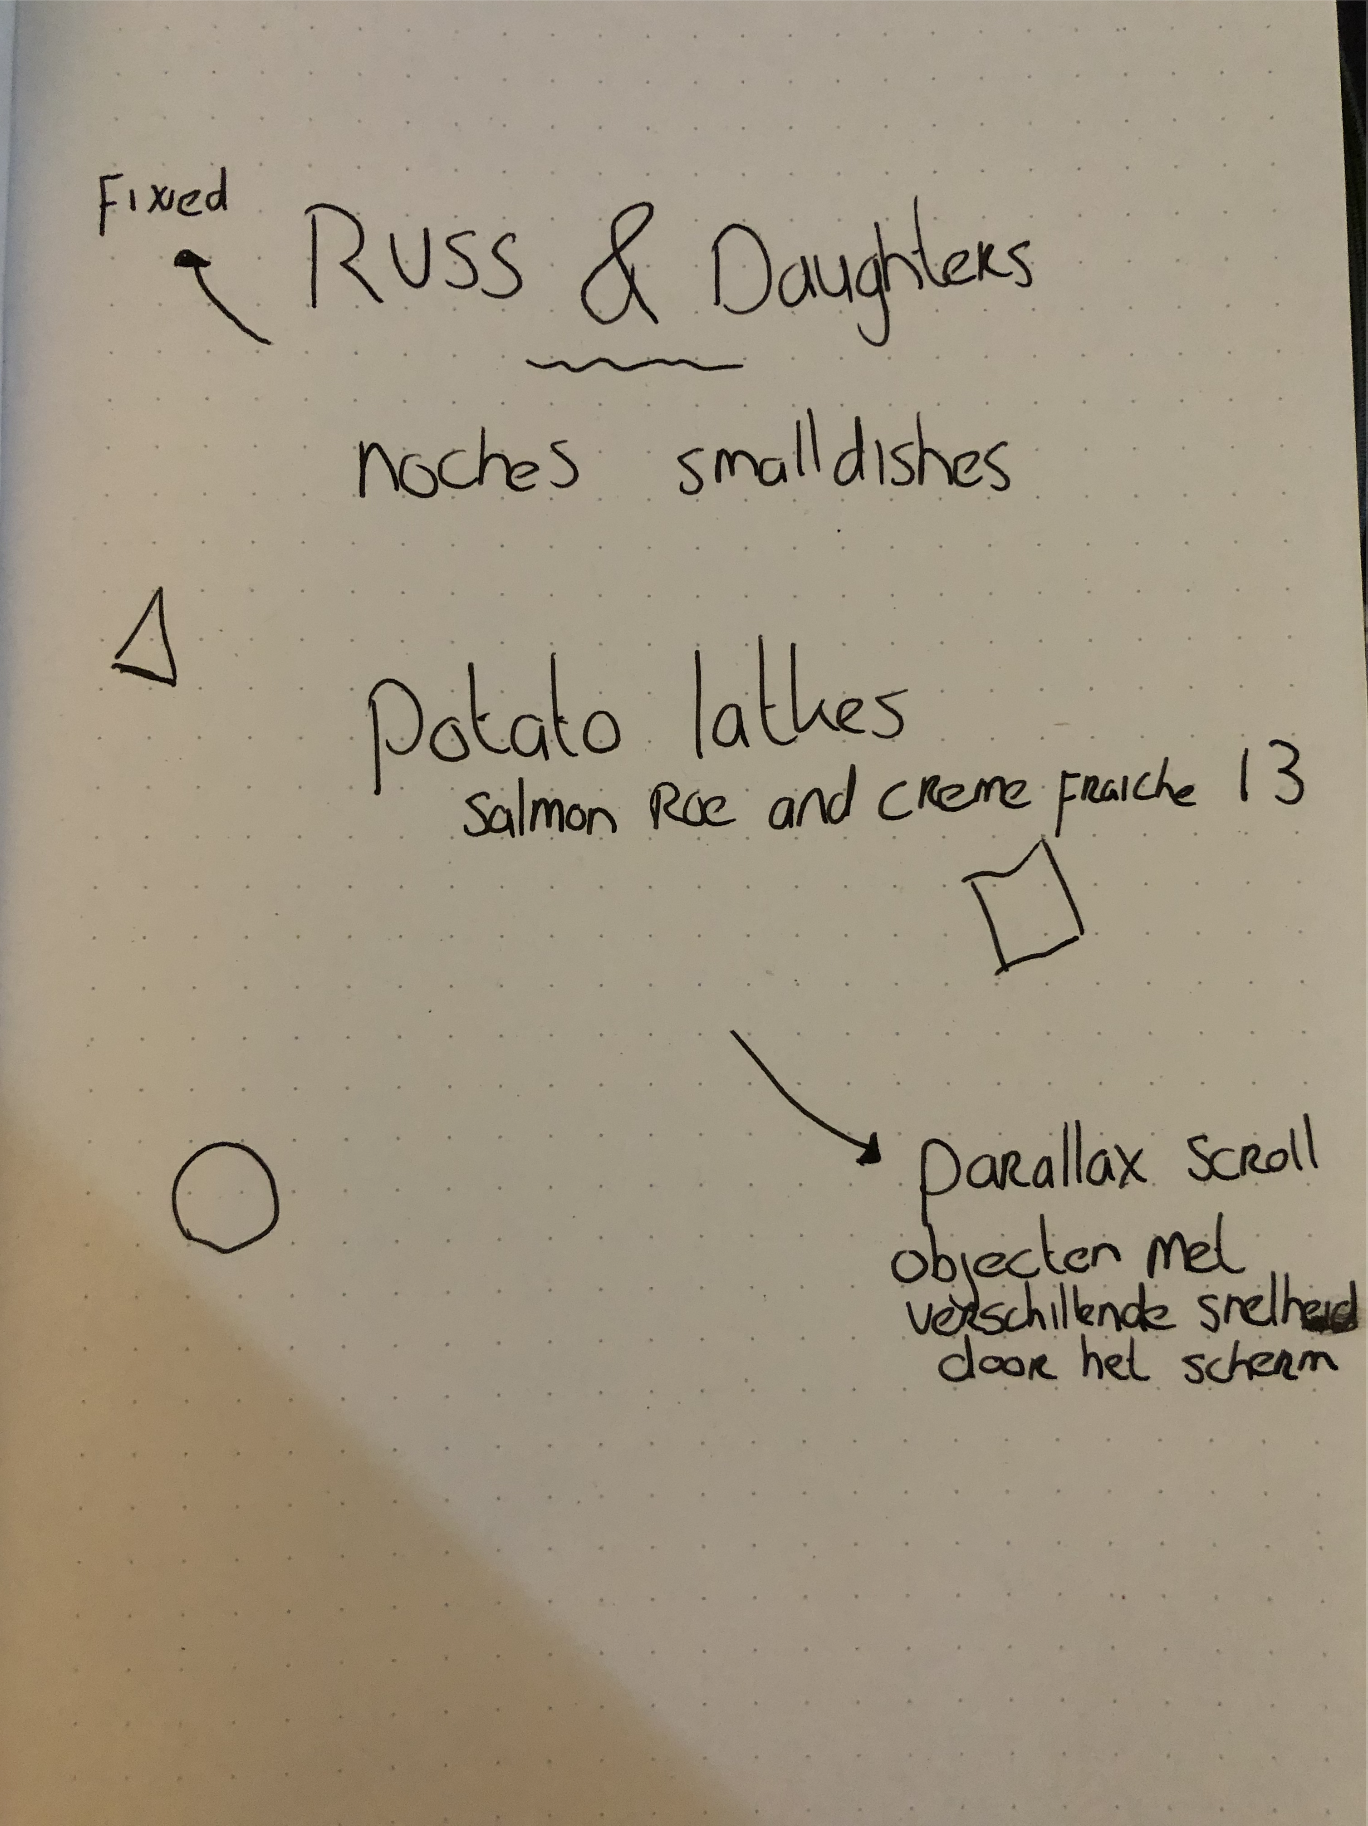 Fixed
Russ & Daughters
noches smalldishes
potato latkes
salmon Roe and creme fraiche 13
parallax scroll
objecten met
verschillende snelheid
door het scherm